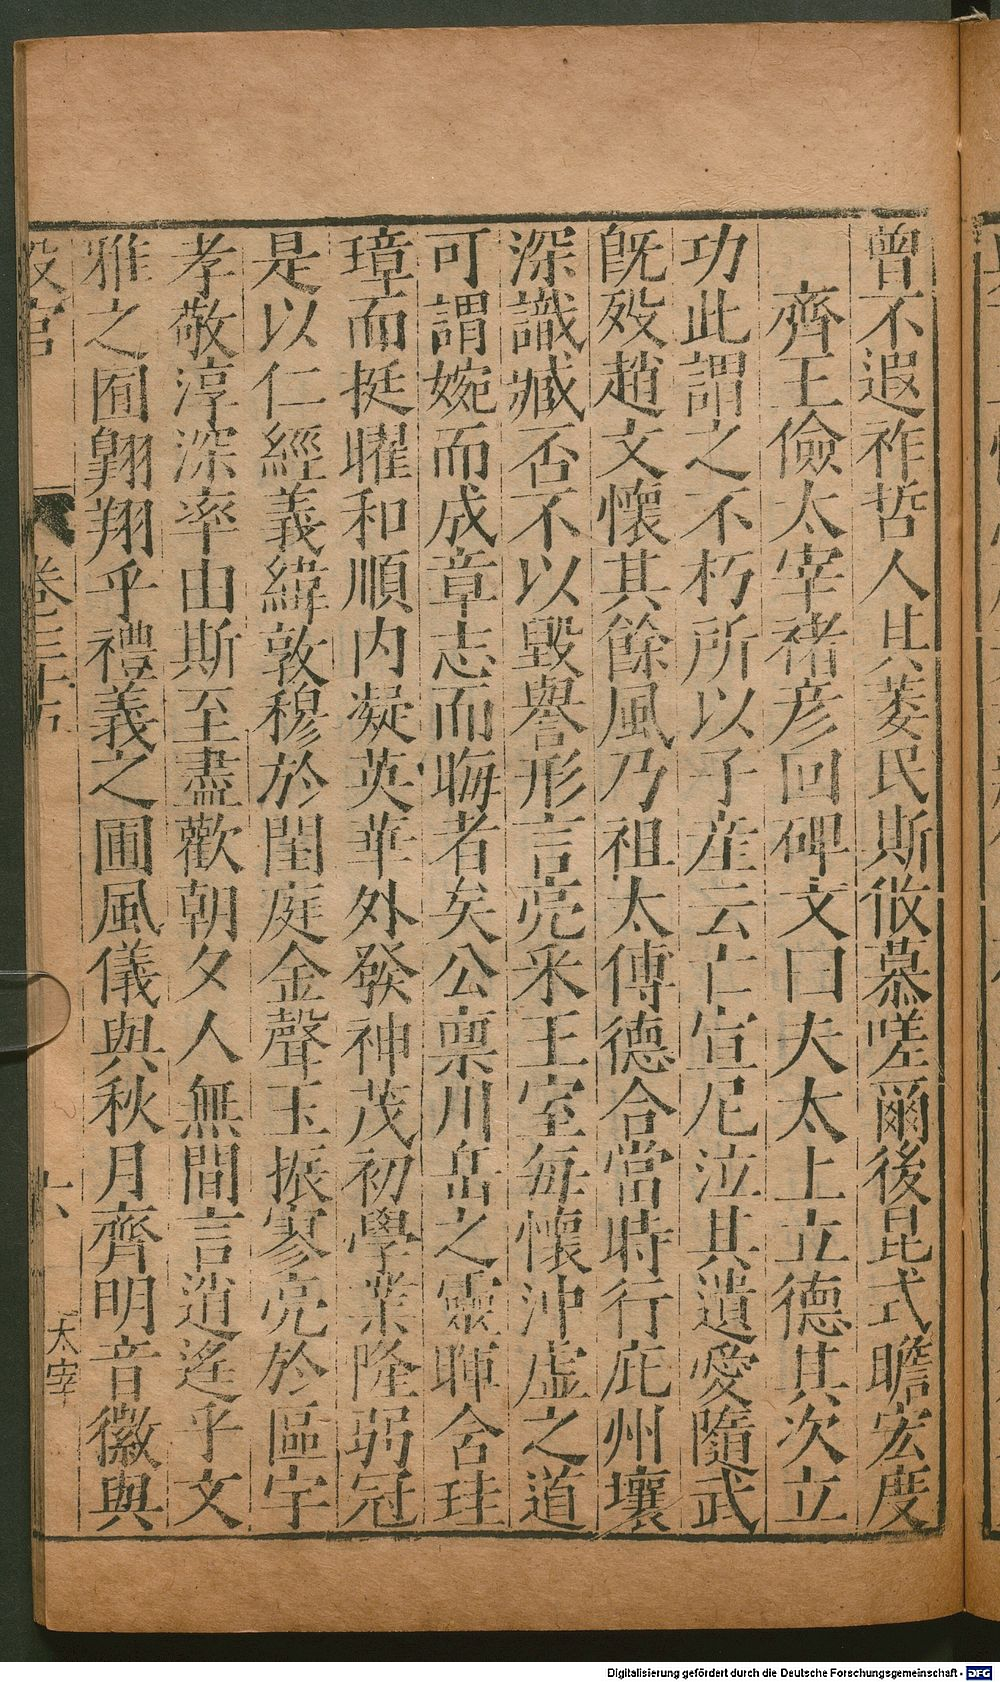 曾不遐祚哲人其萎民斯攸慕嗟爾後昆式瞻宏度
齊王儉太宰褚彦回碑文曰夫太上立德其次立
功此謂之不朽所以子産云亡宣尼泣其遺愛隨武
旣殁趙文懷其餘風乃祖太傅德合當時行庇州壤
深識臧否不以毀譽形言亮采王室每懷沖虛之道
可謂婉而成章志而晦者矣公稟川岳之靈暉含珪
璋而挺曜和順内凝英華外發神茂初學業隆弱冠
是以仁經義緯敦穆於閨庭金聲玉振寥亮於區宇
孝敬淳深率由斯至盡歡朝夕人無間言逍遙乎文
雅之囿翺翔乎禮義之圃風儀與秋月齊明音徽與
設官
卷三十
六
太宰
Digitalisierung gefördert durch die Deutsche Forschungsgemeinschaft - DFG